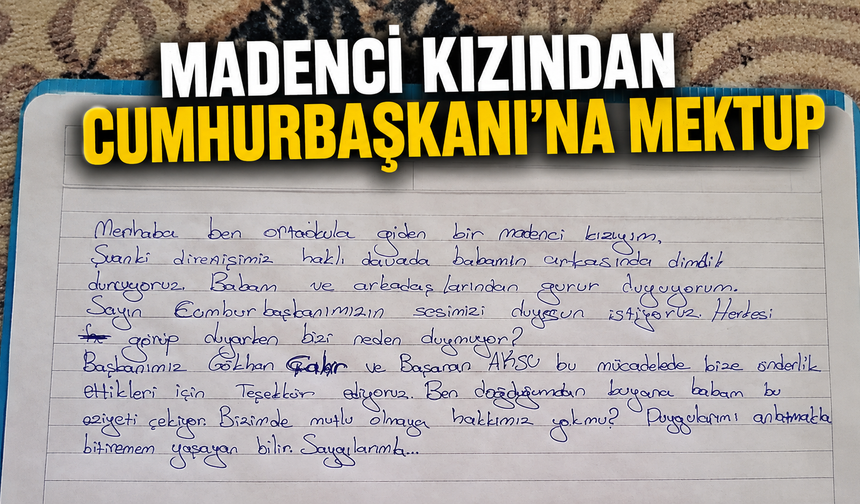 MADENCİ KIZINDAN
CUMHURBAŞKANI'NA MEKTUP
Merhaba ben ortaokula giden bir madenci kızıyım,
Şuanki direnişimiz haklı davada babamın arkasında dimdik
duruyoruz. Babam ve arkadaşlarından gurur duyuyorum.
Sayın Cumhurbaşkanımızın sesimizi duysun istiyoruz. Herkesi
görüp duyarken bizi neden duymuyor?
Başkanımız Gökhan ve Başaran AKSU bu mücadelede bize önderlik
ettikleri için Teşekkür ediyoruz. Ben doğduğumdan buyana babam bu
eziyeti çekiyor. Bizimde mutlu olmaya hakkımız yokmu? Duygularımı anlatmakla
bitiremem yaşayan bilir. Saygılarımla...